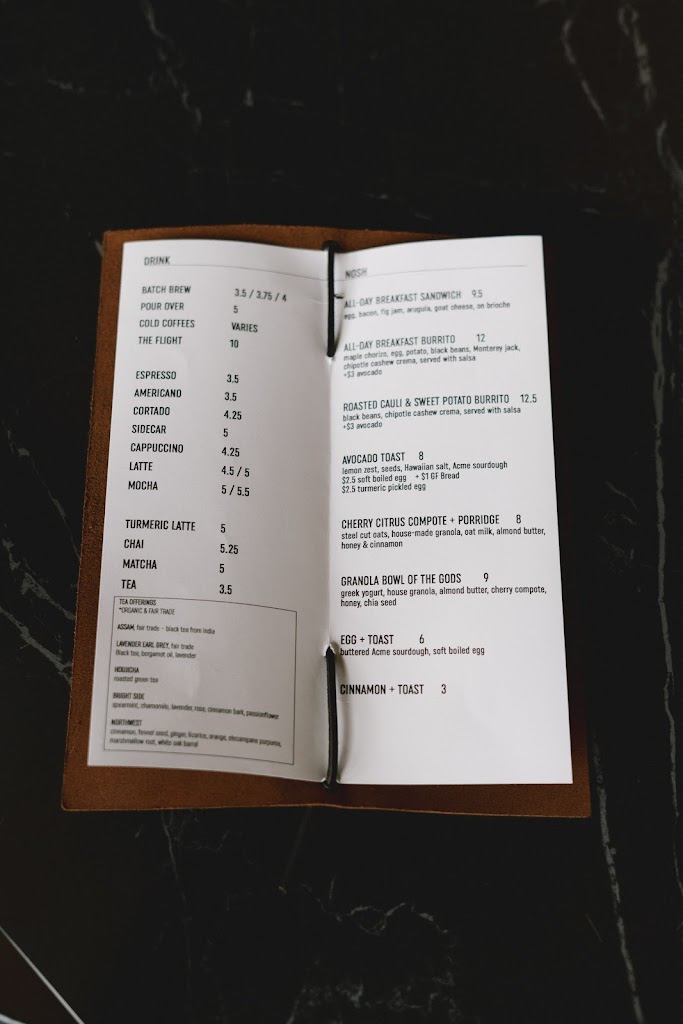 DRINK
BATCH BREW 3.5 / 3.75 / 4
POUR OVER 5
COLD COFFEES VARIES
THE FLIGHT 10
ESPRESSO 3.5
AMERICANO 3.5
CORTADO 4.25
SIDECAR 5
CAPPUCCINO 4.25
LATTE 4.5 / 5
MOCHA 5 / 5.5
TURMERIC LATTE 5
CHAI 5.25
MATCHA 5
TEA 3.5
TEA OFFERINGS
*ORGANIC & FAIR TRADE
ASSAM, fair trade - black tea from india
LAVENDER EARL GREY, fair trade
Black tea, bergamot oil, lavender
HOUJICHA
roasted green tea
BRIGHT SIDE
spearmint, chamomile, lavender, rose, cinnamon bark, passionflower
NORTHWEST
cinnamon, fennel seed, ginger, licorice, orange, elecampane purpurea,
marshmallow root, white oak barrel
NOSH
ALL-DAY BREAKFAST SANDWICH 9.5
egg, bacon, fig jam, arugula, goat cheese, on brioche
ALL-DAY BREAKFAST BURRITO 12
maple chorizo, egg, potato, black beans, Monterey jack,
chipotle cashew crema, served with salsa
+$3 avocado
ROASTED CAULI & SWEET POTATO BURRITO 12.5
black beans, chipotle cashew crema, served with salsa
+$3 avocado
AVOCADO TOAST 8
lemon zest, seeds, Hawaiian salt, Acme sourdough
$2.5 soft boiled egg + $1 GF Bread
$2.5 turmeric pickled egg
CHERRY CITRUS COMPOTE + PORRIDGE 8
steel cut oats, house-made granola, oat milk, almond butter,
honey & cinnamon
GRANOLA BOWL OF THE GODS 9
greek yogurt, house granola, almond butter, cherry compote,
honey, chia seed
EGG + TOAST 6
buttered Acme sourdough, soft boiled egg
CINNAMON + TOAST 3